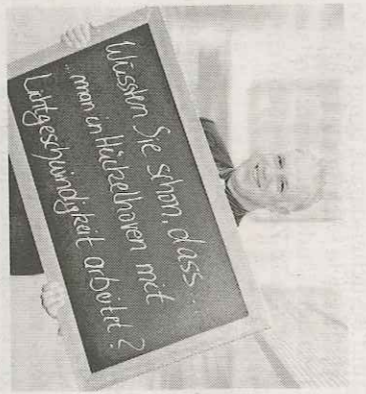 Wüssten Sie schon, dass...
...man in Hückelhoven mit
Lichtgeschwindigkeit arbeitet?